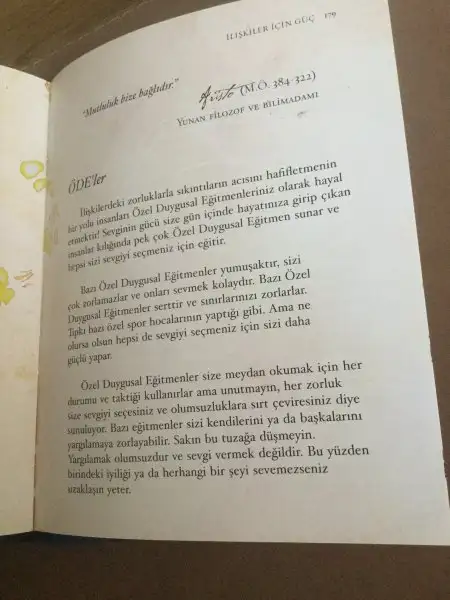 İLIŞKİLER İÇİN GÜÇ 179
"Mutluluk bize bağlıdır."
Aristo (M.Ö. 384-322)
YUNAN FİLOZOF VE BİLİMADAMI
ÖDE'ler
İlişkilerdeki zorluklarla sıkıntıların acısını hafifletmenin
bir yolu insanları Özel Duygusal Eğitmenleriniz olarak hayal
etmektir! Sevginin gücü size gün içinde hayatınıza girip çıkan
insanlar kılığında pek çok Özel Duygusal Eğitmen sunar ve
hepsi sizi sevgiyi seçmeniz için eğitir.
Bazı Özel Duygusal Eğitmenler yumuşaktır, sizi
çok zorlamazlar ve onları sevmek kolaydır. Bazı Özel
Duygusal Eğitmenler serttir ve sınırlarınızı zorlarlar.
Tıpkı bazı özel spor hocalarının yaptığı gibi. Ama ne
olursa olsun hepsi de sevgiyi seçmeniz için sizi daha
güçlü yapar.
Özel Duygusal Eğitmenler size meydan okumak için her
durumu ve taktiği kullanırlar ama unutmayın, her zorluk
size sevgiyi seçesiniz ve olumsuzluklara sırt çeviresiniz diye
sunuluyor. Bazı eğitmenler sizi kendilerini ya da başkalarını
yargılamaya zorlayabilir. Sakın bu tuzağa düşmeyin.
Yargılamak olumsuzdur ve sevgi vermek değildir. Bu yüzden
birindeki iyiliği ya da herhangi bir şeyi sevemezseniz
uzaklaşın yeter.